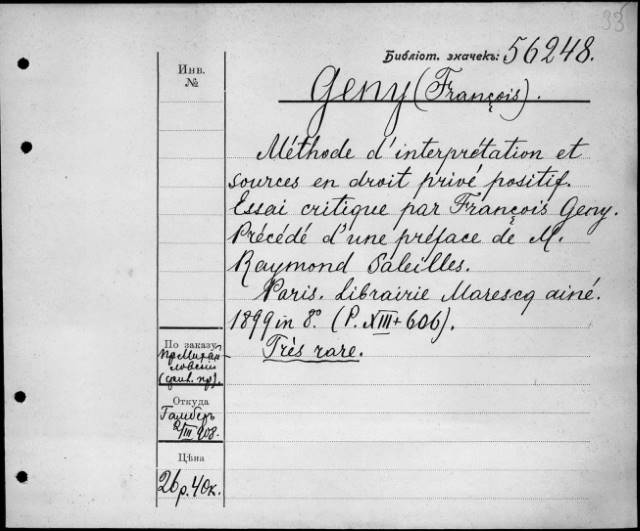 33
Библіот. значекъ: 56248.
Инв.
№
Geny (François).
Méthode d'interprétation et
sources en droit privé positif.
Essai critique par François Geny.
Précédé d'une préface de M.
Raymond Saleilles.
Paris. Librairie Marescq ainé.
1899 in 8º. (P. XIII + 606).
Très rare.
По заказу
пр. Михай-
ловскій
Откуда
Гамберъ
2/III 908.
Цѣна
26 р. 40 к.